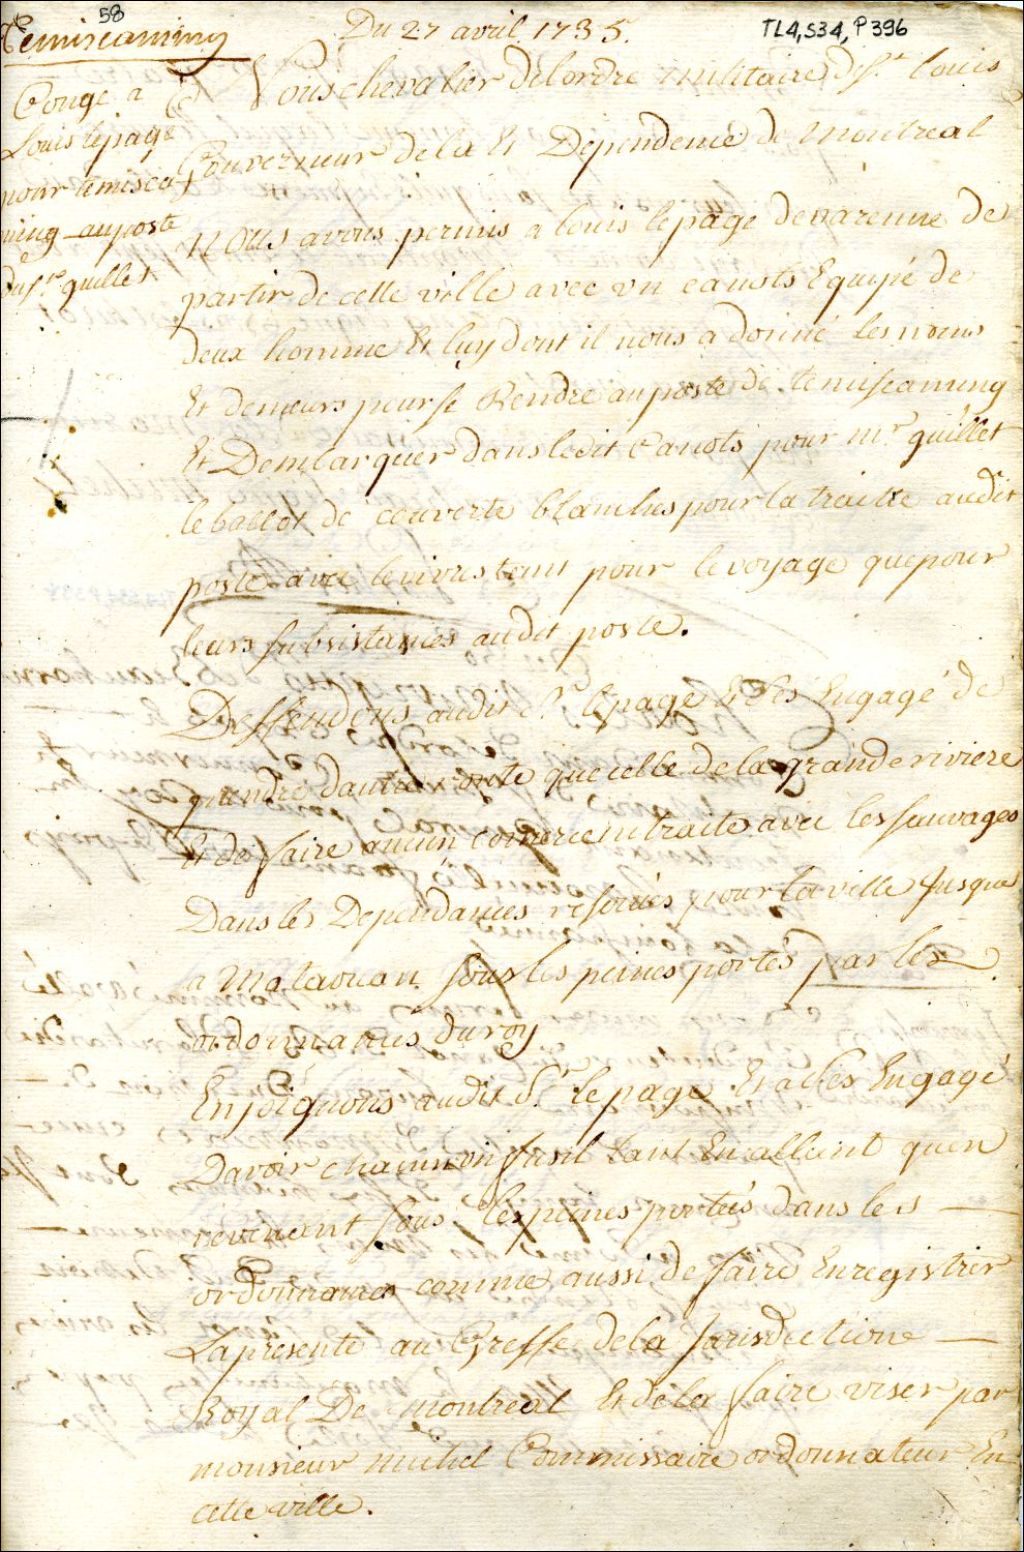 58
Temiscaming
Du 27 avril 1735.
TL4, S34, P396
Congé a
Louis lepage
pour temisca
ming au poste
du sr. guillet
Nous chevalier delordre militaire de st. louis
Gouverneur dela Et Dependence de Montreal
Nous avons permis a louis lepage devarenne de
partir de cette ville avec vn canots Equipé de
deux homme Et luy dont il nous a donné les noms
Et demeurs pour se Rendre au poste de temiscaming
Et Dembarquer dans ledit Canots pour mr. guillet
le ballot de couverte blanches pour la traitte audit
poste avec le vivres tant pour le voyage que pour
leurs subsistances audit poste.
Deffendons audit Sr. lepage Et ses Engagé de
prendre dautre route que celle dela grande riviere
Et de faire aucun comerce ni traite avec les sauvages
Dans les Dependances resonées pour la ville Jusques
a Mataouan sous les peines portés par les
ordonnances du roy
Enjoignons audit Sr. le page Et a ses Engagé
Davoir chacun vn fusil tant En allant quen
revenant sous les peines portées dans les
ordonnances comme aussi de faire Enregistrer
Lapresente au Greffe dela Jurisdictione
Royal De Montreal Et dela faire viser par
monsieur michel Commissaire ordonnateur En
cette ville.